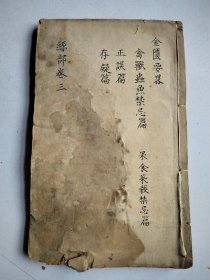 金匱要畧
禽獸蟲魚禁忌篇
果食菜穀禁忌篇
正誤篇
存疑篇
綜部卷三